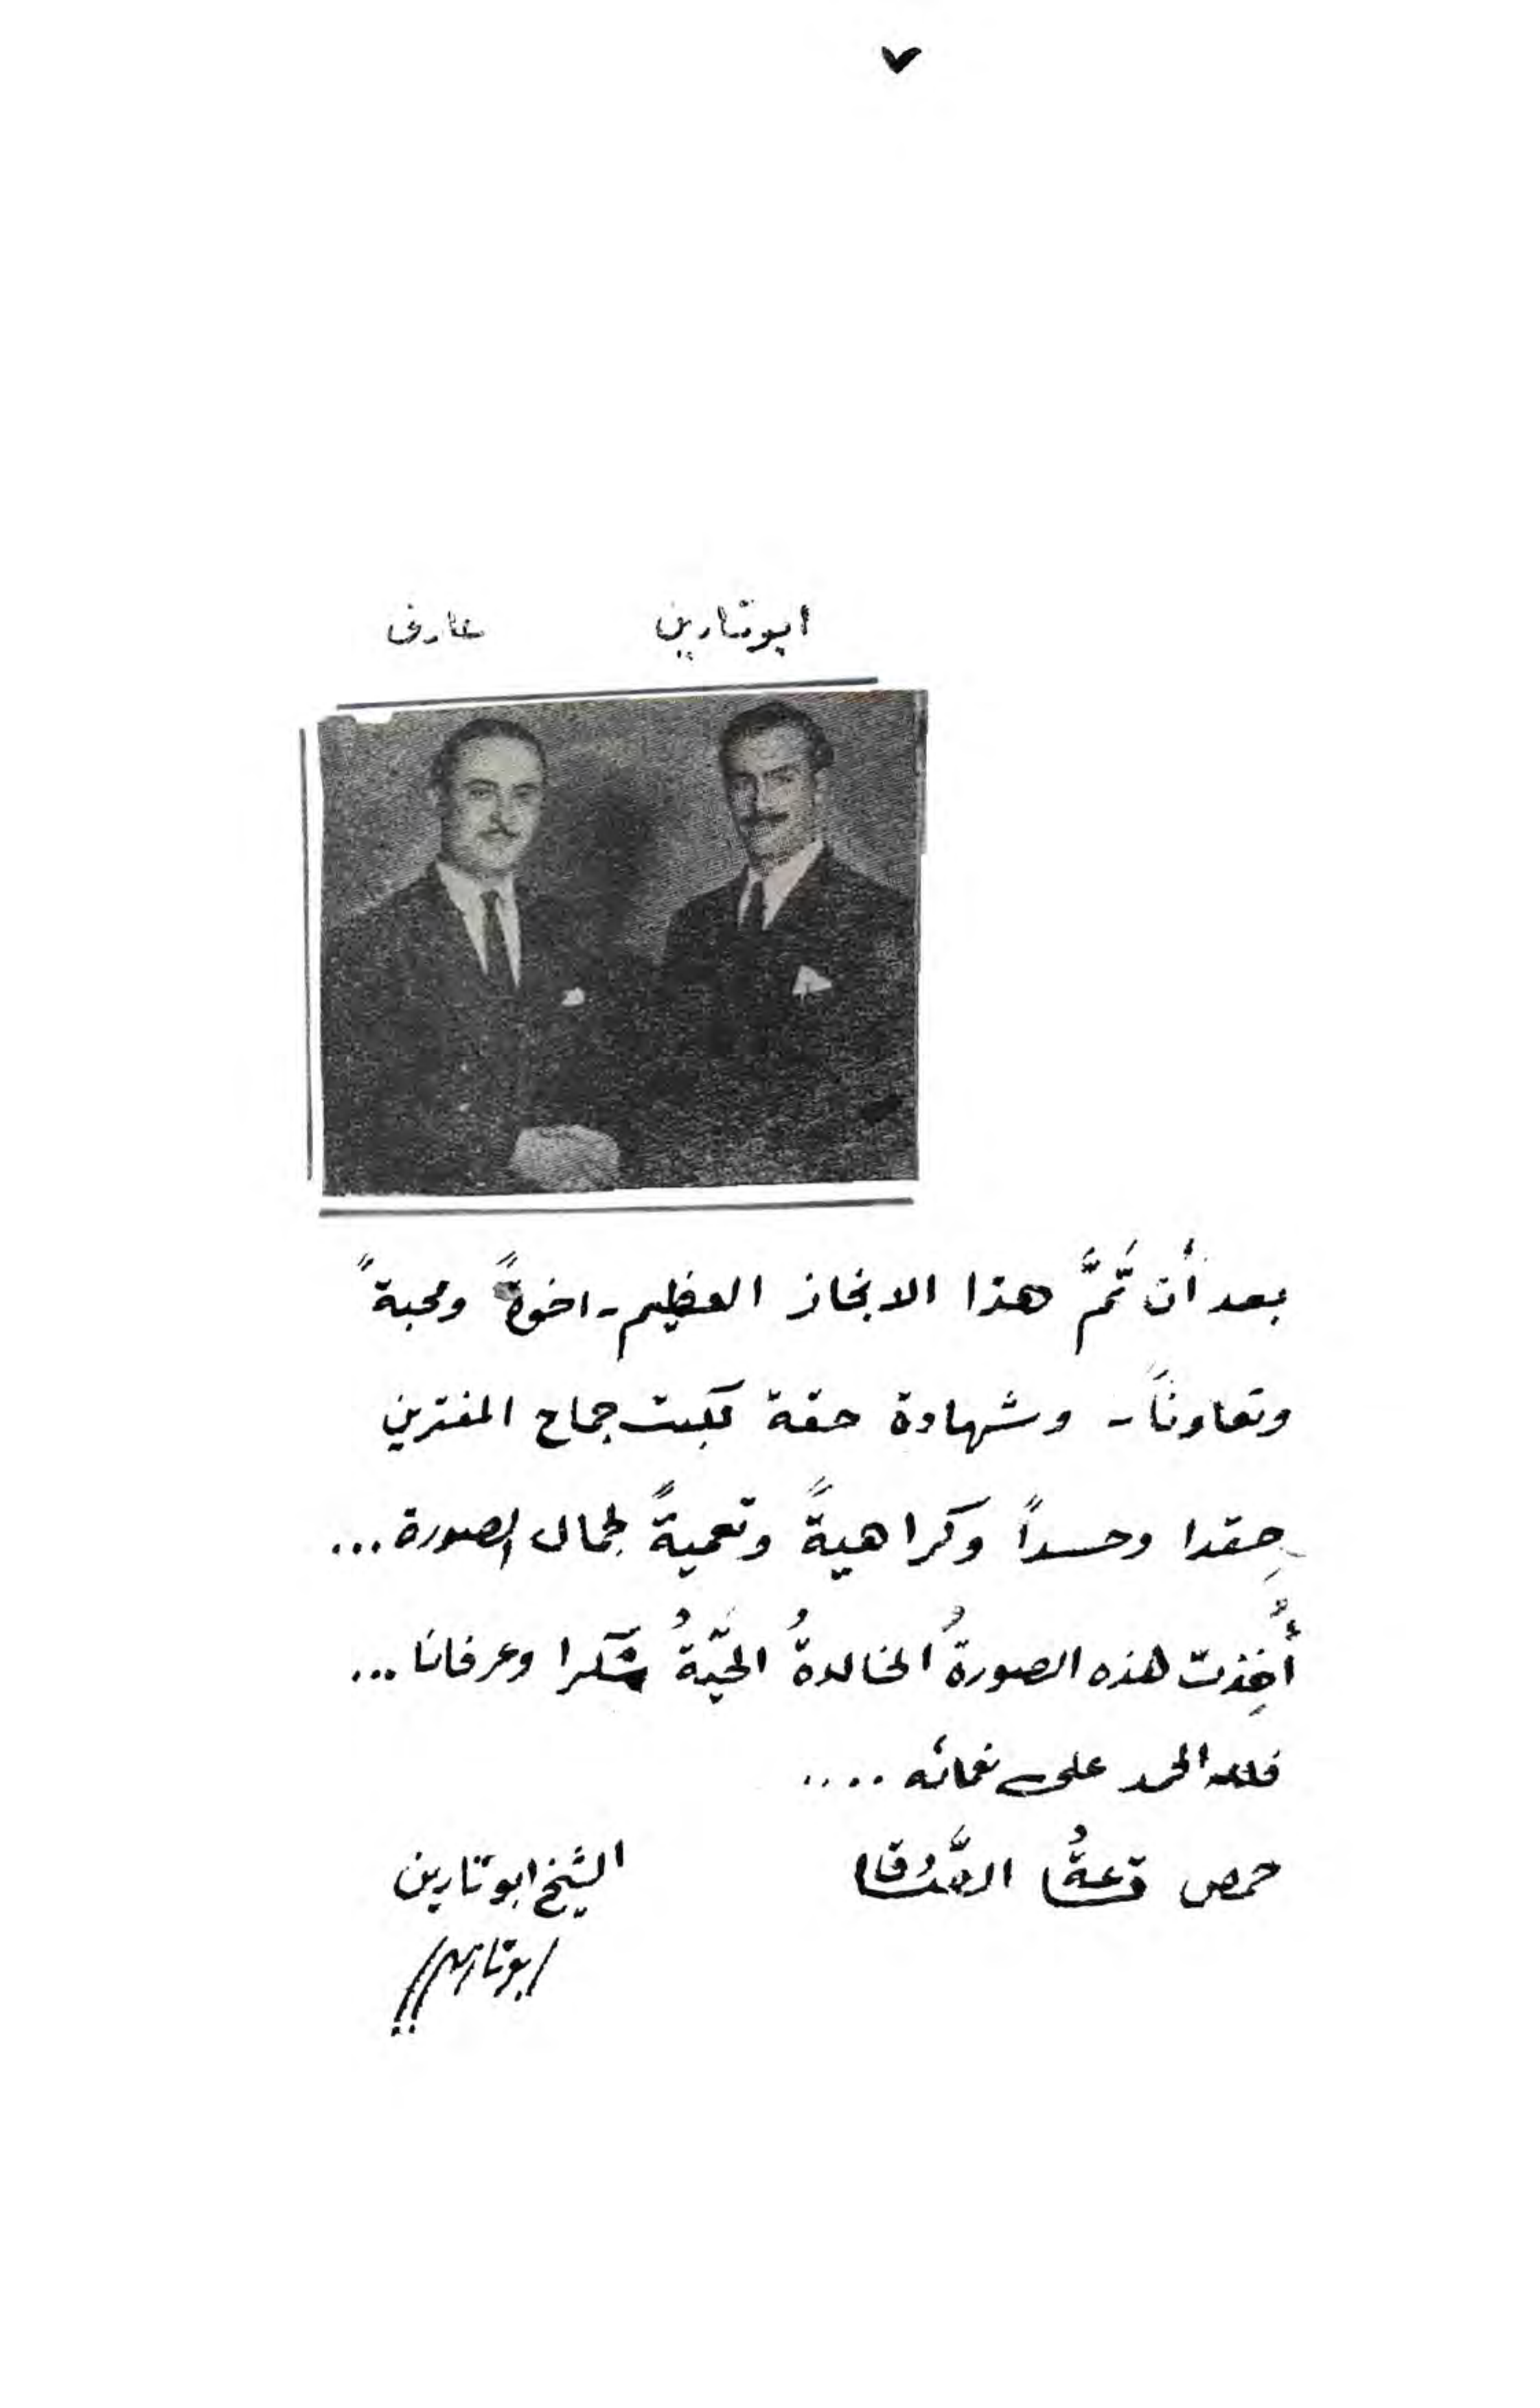 ٧
ابو تارين عارف
بعد أن تمَّ هذا الانجاز العظيم - اخوةً ومحبةً
وتعاوناً - وشهادة حقة تكبت جماح المفترين
حِقدا وحسداً وكراهيةً وتعميةً لجمال الصورة ...
أُخِذت هذه الصورةُ الخالدةُ الحيّةُ شكرا وعرفانا ...
فلله الحمد على نعمائه ....
حمص
الشيخ ابو تارين
ابو تارين